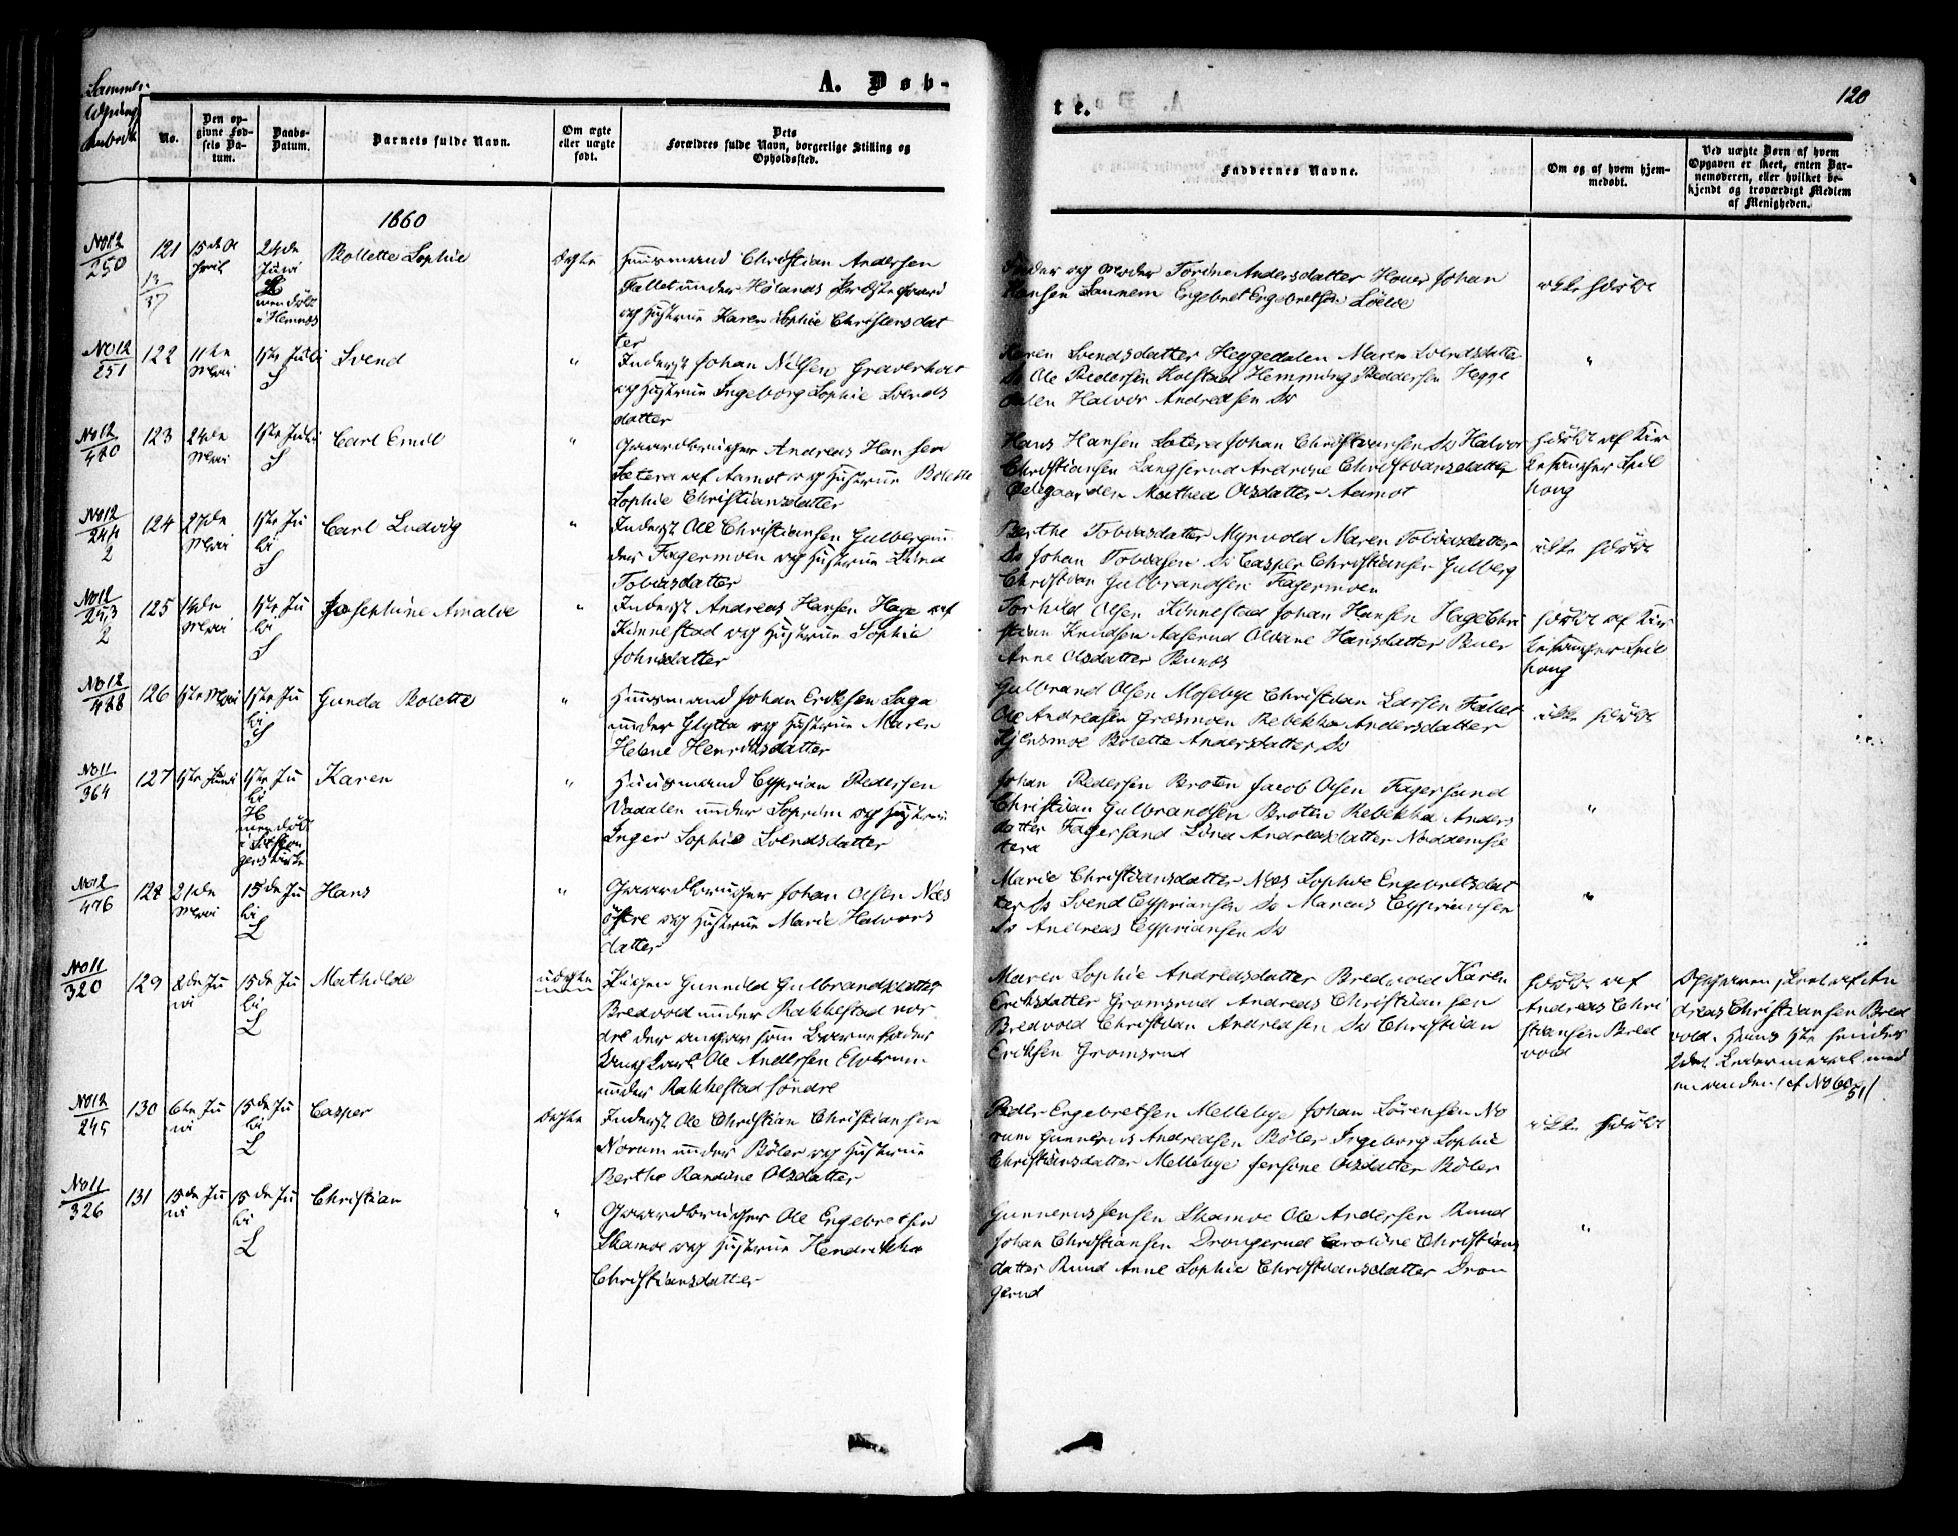 A. Døb-
te.
120
No.
Den op-
givne Fød-
sels Da-
tum.
Daabs-
Datum.
Barnets fulde Navn.
Om ægte
eller uægte
født.
Dets
Forældres fulde Navn, borgerlige Stilling og
Opholdssted.
Faddernes Navne.
Om og af hvem hjem-
medøbt.
Ved uægte Børn af hvem
Opgaven er skeet, enten Bar-
nemoderen, eller hvilket be-
kjendt og troværdigt Medlem
af Menigheden.
1860
No 12
250
121
24de
Juni
H
men døbt
i Hemnæs
Bollette Sophie
ægte
Huusmand Christian Andersen
Fallet under Hølands Præstegaard
og Hustrue Karen Sophie Christensdat
ter
Fader og Moder Torine Andersdatter Johan
Hansen Engebret Engebretsen
ikke hjdøbt
No 12
251
122
11te
Mai
1ste Juli
S
Svend
"
Inderst Johan Nilsen
og Hustrue Ingeborg Sophie Svends
datter
Karen Svendsdatter Heggedalen Maren Svendsdatter
Ss Ole Pedersen Kolstad Hemming Peddersen Hegge
dalen Halvor Andreasen Ss
"
No 12
480
123
24de
Mai
1ste Juli
S
Carl Emil
"
Gaardbruger Andreas Hansen
Setera af Aamot og Hustrue Bolette
Sophie Christiansdatter
Hans Hansen Setera Johan Christiansen Ss Halvor
Christiansen Langserud Andrine Christiansdatter
Ødegaarden Mathea Olsdatter Aamot
hjdøbt af Kir
kesanger Spil
houg
No 12
244
2
124
27de
Mai
1ste Ju
li
S
Carl Ludvig
"
Inderst Ole Christiansen Gulberg un
der Fagermoen og Hustrue
Tobiasdatter
Berthe Tobiasdatter Myrvold Maren Tobiasdatter
Ss Johan Tobiasen Ss Casper Christiansen Gulberg
Christian Gulbrandsen Fagermoen
ikke hjdøbt
No 12
253
2
125
Mai
1ste Ju
li
S
Josephine Amalie
"
Inderst Andreas Hansen Hage af
Kinnestad og Hustrue Sophie
Johnsdatter
Torhild Olsen Kinnestad Johan Hansen Hage Chri
stian Knudsen Aaserud Oleane Hansdatter Buer
Anne Olsdatter Bunæs
hjdøbt af Kir
kesanger Spil
houg
No 12
488
126
1ste Mai
1ste Ju
li
S
Gunda Bolette
"
Huusmand Johan Eriksen Saga
under Glytta og Hustrue Maren
Helene Henriksdatter
Gulbrand Olsen Mosebye Christian Larsen Fallet
Ole Andreasen Græsmoen Rebekka Andersdatter
Bolette Andersdatter Ss
ikke hjdøbt
No 11
364
127
1ste Juni
1ste Ju
li
H
men døbt
Karen
"
Huusmand Cyprian Pedersen
Vadalen under Soprim og Hustrue
Inger Sophie Svendsdatter
Johan Pedersen Broten Jacob Olsen Fagersand
Christian Gulbrandsen Broten Rebekka Anders
datter Fagersand Lina Andreasdatter
"
No 12
476
128
21de
Mai
15de Ju
li
L
Hans
"
Gaardbruger Johan Olsen Næs
østre og Hustrue Marie Halvors
datter
Marie Christiansdatter Næs Sophie Engebretsdat
ter Ss Svend Cypriansen Ss Marcus Cypriansen
Ss Andreas Cypriansen Ss
"
No 11
320
129
2de Ju
ni
15de Ju
li
L
Mathilde
uægte
Pigen Gunnild Gulbrandsdatter
Bredvold under Rakkestad nor
dre der angav som Barnefader
Ungkarl Ole Andersen
under Rakkestad søndre
Maren Sophie Andreasdatter Bredvold Karen
Eriksdatter Gromsrud Andreas Christiansen
Bredvold Christian Andreasen Ss Christian
Eriksen Gromsrud
hjdøbt af
Andreas Chri
stiansen Bred
vold
Opgaven skeet af An
dreas Christiansen Bred
vold. Hans 1ste hendes
2det Leiermaal med
en anden
No 12
245
130
6te Ju
ni
15de Ju
li
L
Casper
ægte
Inderst Ole Christian Christiansen
Norum under Bøler og Hustrue
Berthe Randine Olsdatter
Peder Engebretsen Mellebye Johan Sørensen No
rum Gunnerus Andreasen Bøler Ingeborg Sophie
Christiansdatter Mellebye Jensine Olsdatter Bøler
ikke hjdøbt
No 11
326
131
15de Ju
ni
15de Ju
li
L
Christian
"
Gaardbruger Ole Engebretsen
Skamoe og Hustrue Hendrikka
Christiansdatter
Gunnerus Jensen Skamoe Ole Andersen Ruud
Johan Christiansen Drongerud Caroline Christians
datter Ruud Anne Sophie Christiansdatter Dron
gerud
"